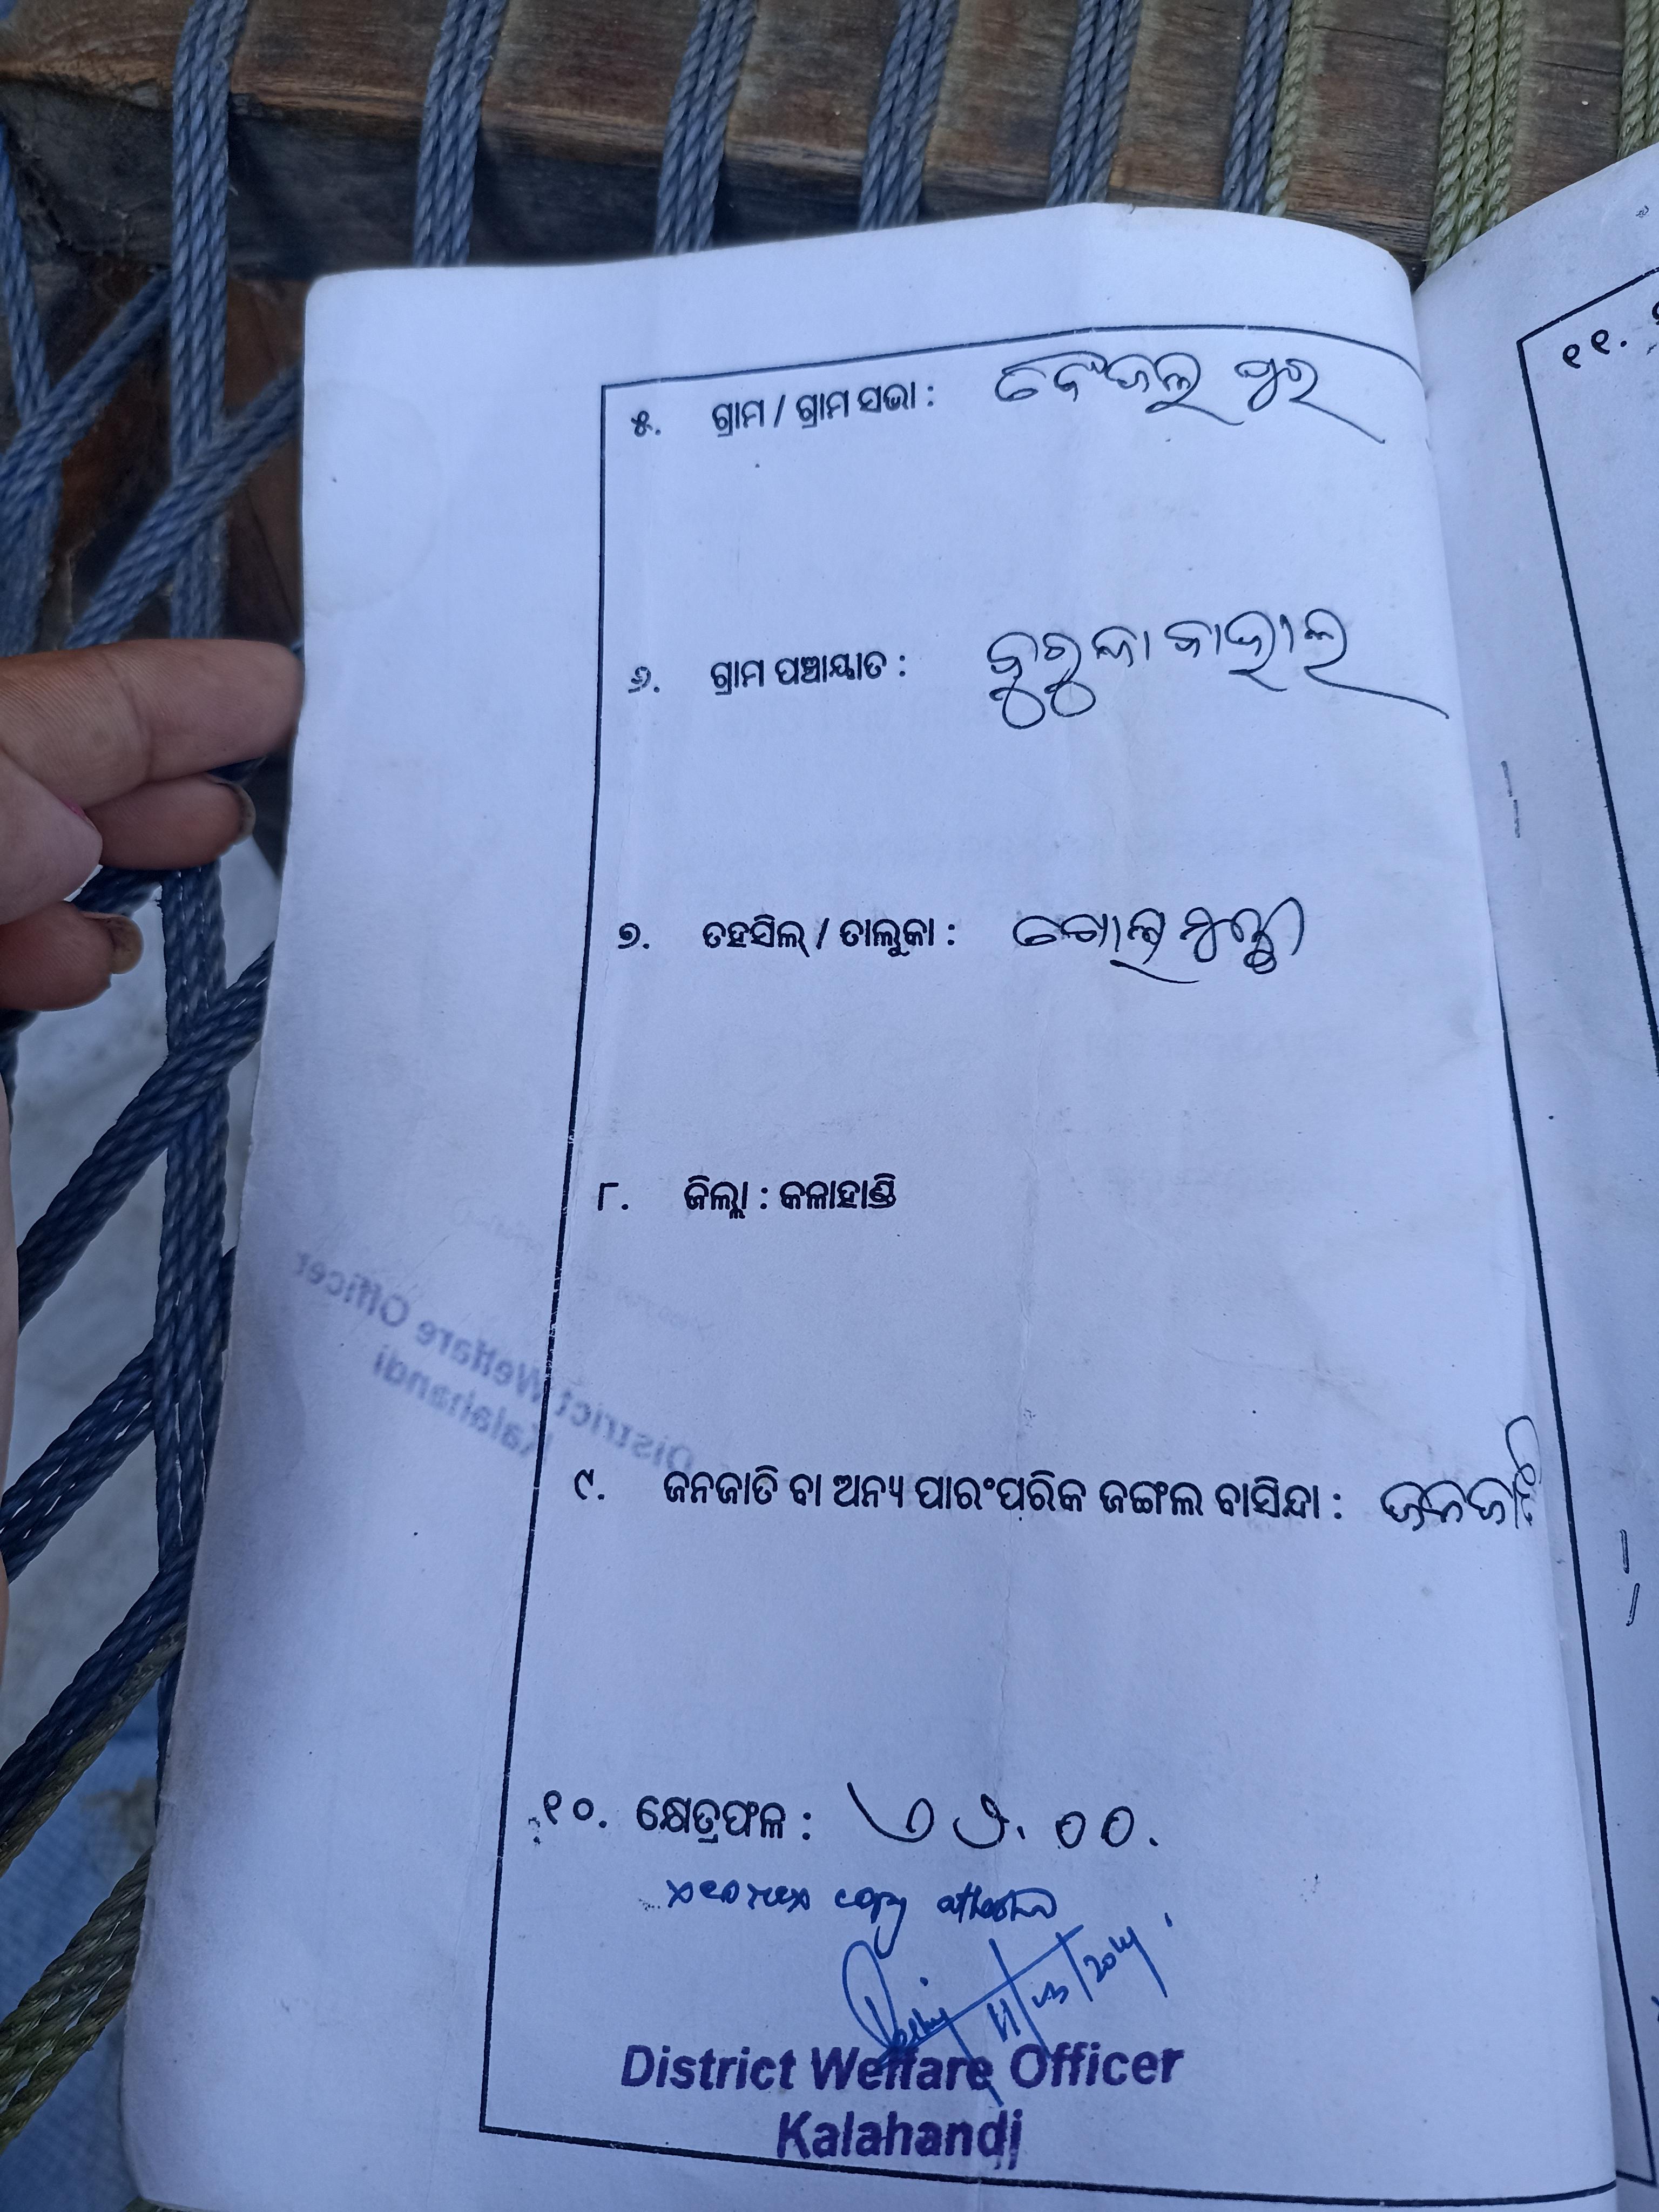 ୫. ଗ୍ରାମ / ଗ୍ରାମ ସଭା : ବେଜଲପୁର
୬. ଗ୍ରାମ ପଞ୍ଚାୟାତ :
୭. ତହସିଲ୍ / ତାଲୁକା :
୮. ଜିଲ୍ଲା : କଳାହାଣ୍ଡି
୯. ଜନଜାତି ବା ଅନ୍ୟ ପାରଂପରିକ ଜଙ୍ଗଲ ବାସିନ୍ଦା : ଜନଜାତି
୧୦. କ୍ଷେତ୍ରଫଳ :
xerox copy attested
District Welfare Officer
Kalahandi
District Welfare Officer
Kalahandi
୧୧.